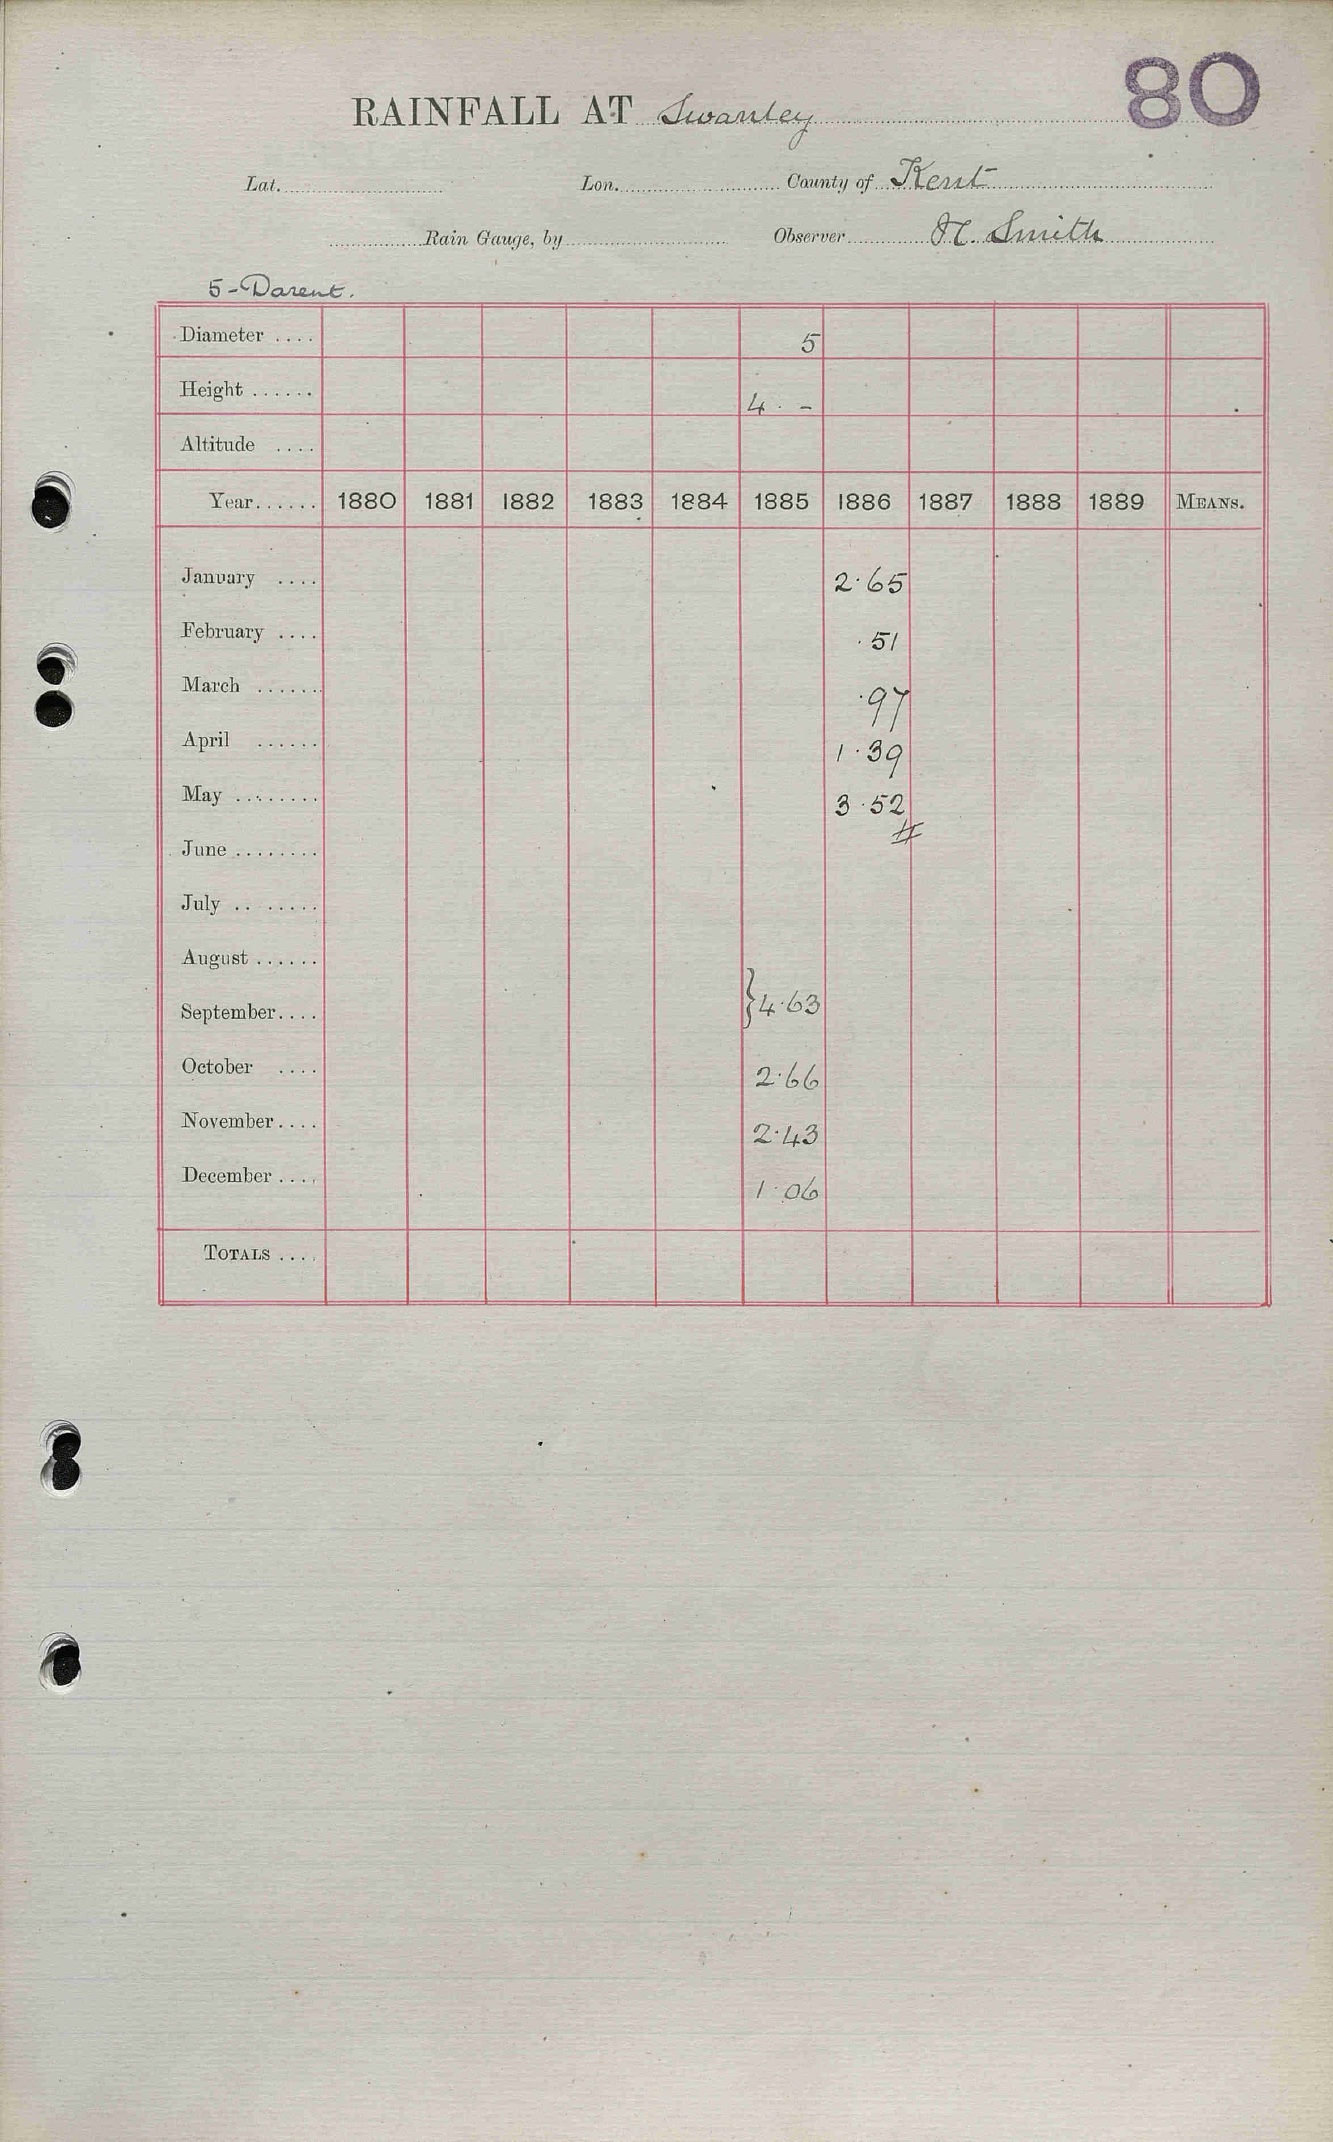 80
RAINFALL AT Swanley
Lat. Lon. County of Kent
Rain Gauge, by Observer H. Smith
5-Darent.
Diameter .... 5
Height ...... 4 . -
Altitude ....
Year...... 1880 1881 1882 1883 1884 1885 1886 1887 1888 1889 MEANS.
January .... 2.65
February .... .51
March ...... .97
April ...... 1.39
May ........ 3.52
#
June ........
July .. ......
August ......
September.... } 4.63
October .... 2.66
November.... 2.43
December .... 1.06
TOTALS ....